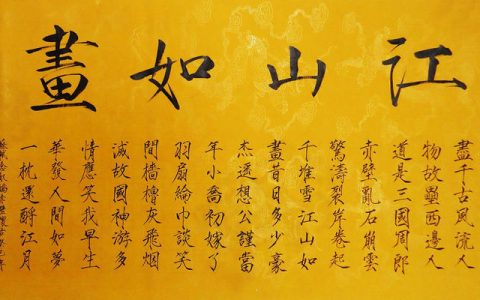 江山如畫
盡千古風流人
物故壘西邊人
道是三國周郎
赤壁亂石崩雲
驚濤裂岸卷起
千堆雪江山如
畫昔日多少豪
杰遥想公謹當
年小喬初嫁了
羽扇綸巾談笑
間墻櫓灰飛烟
滅故國神游多
情應笑我早生
華發人間如夢
一枕還酹江月